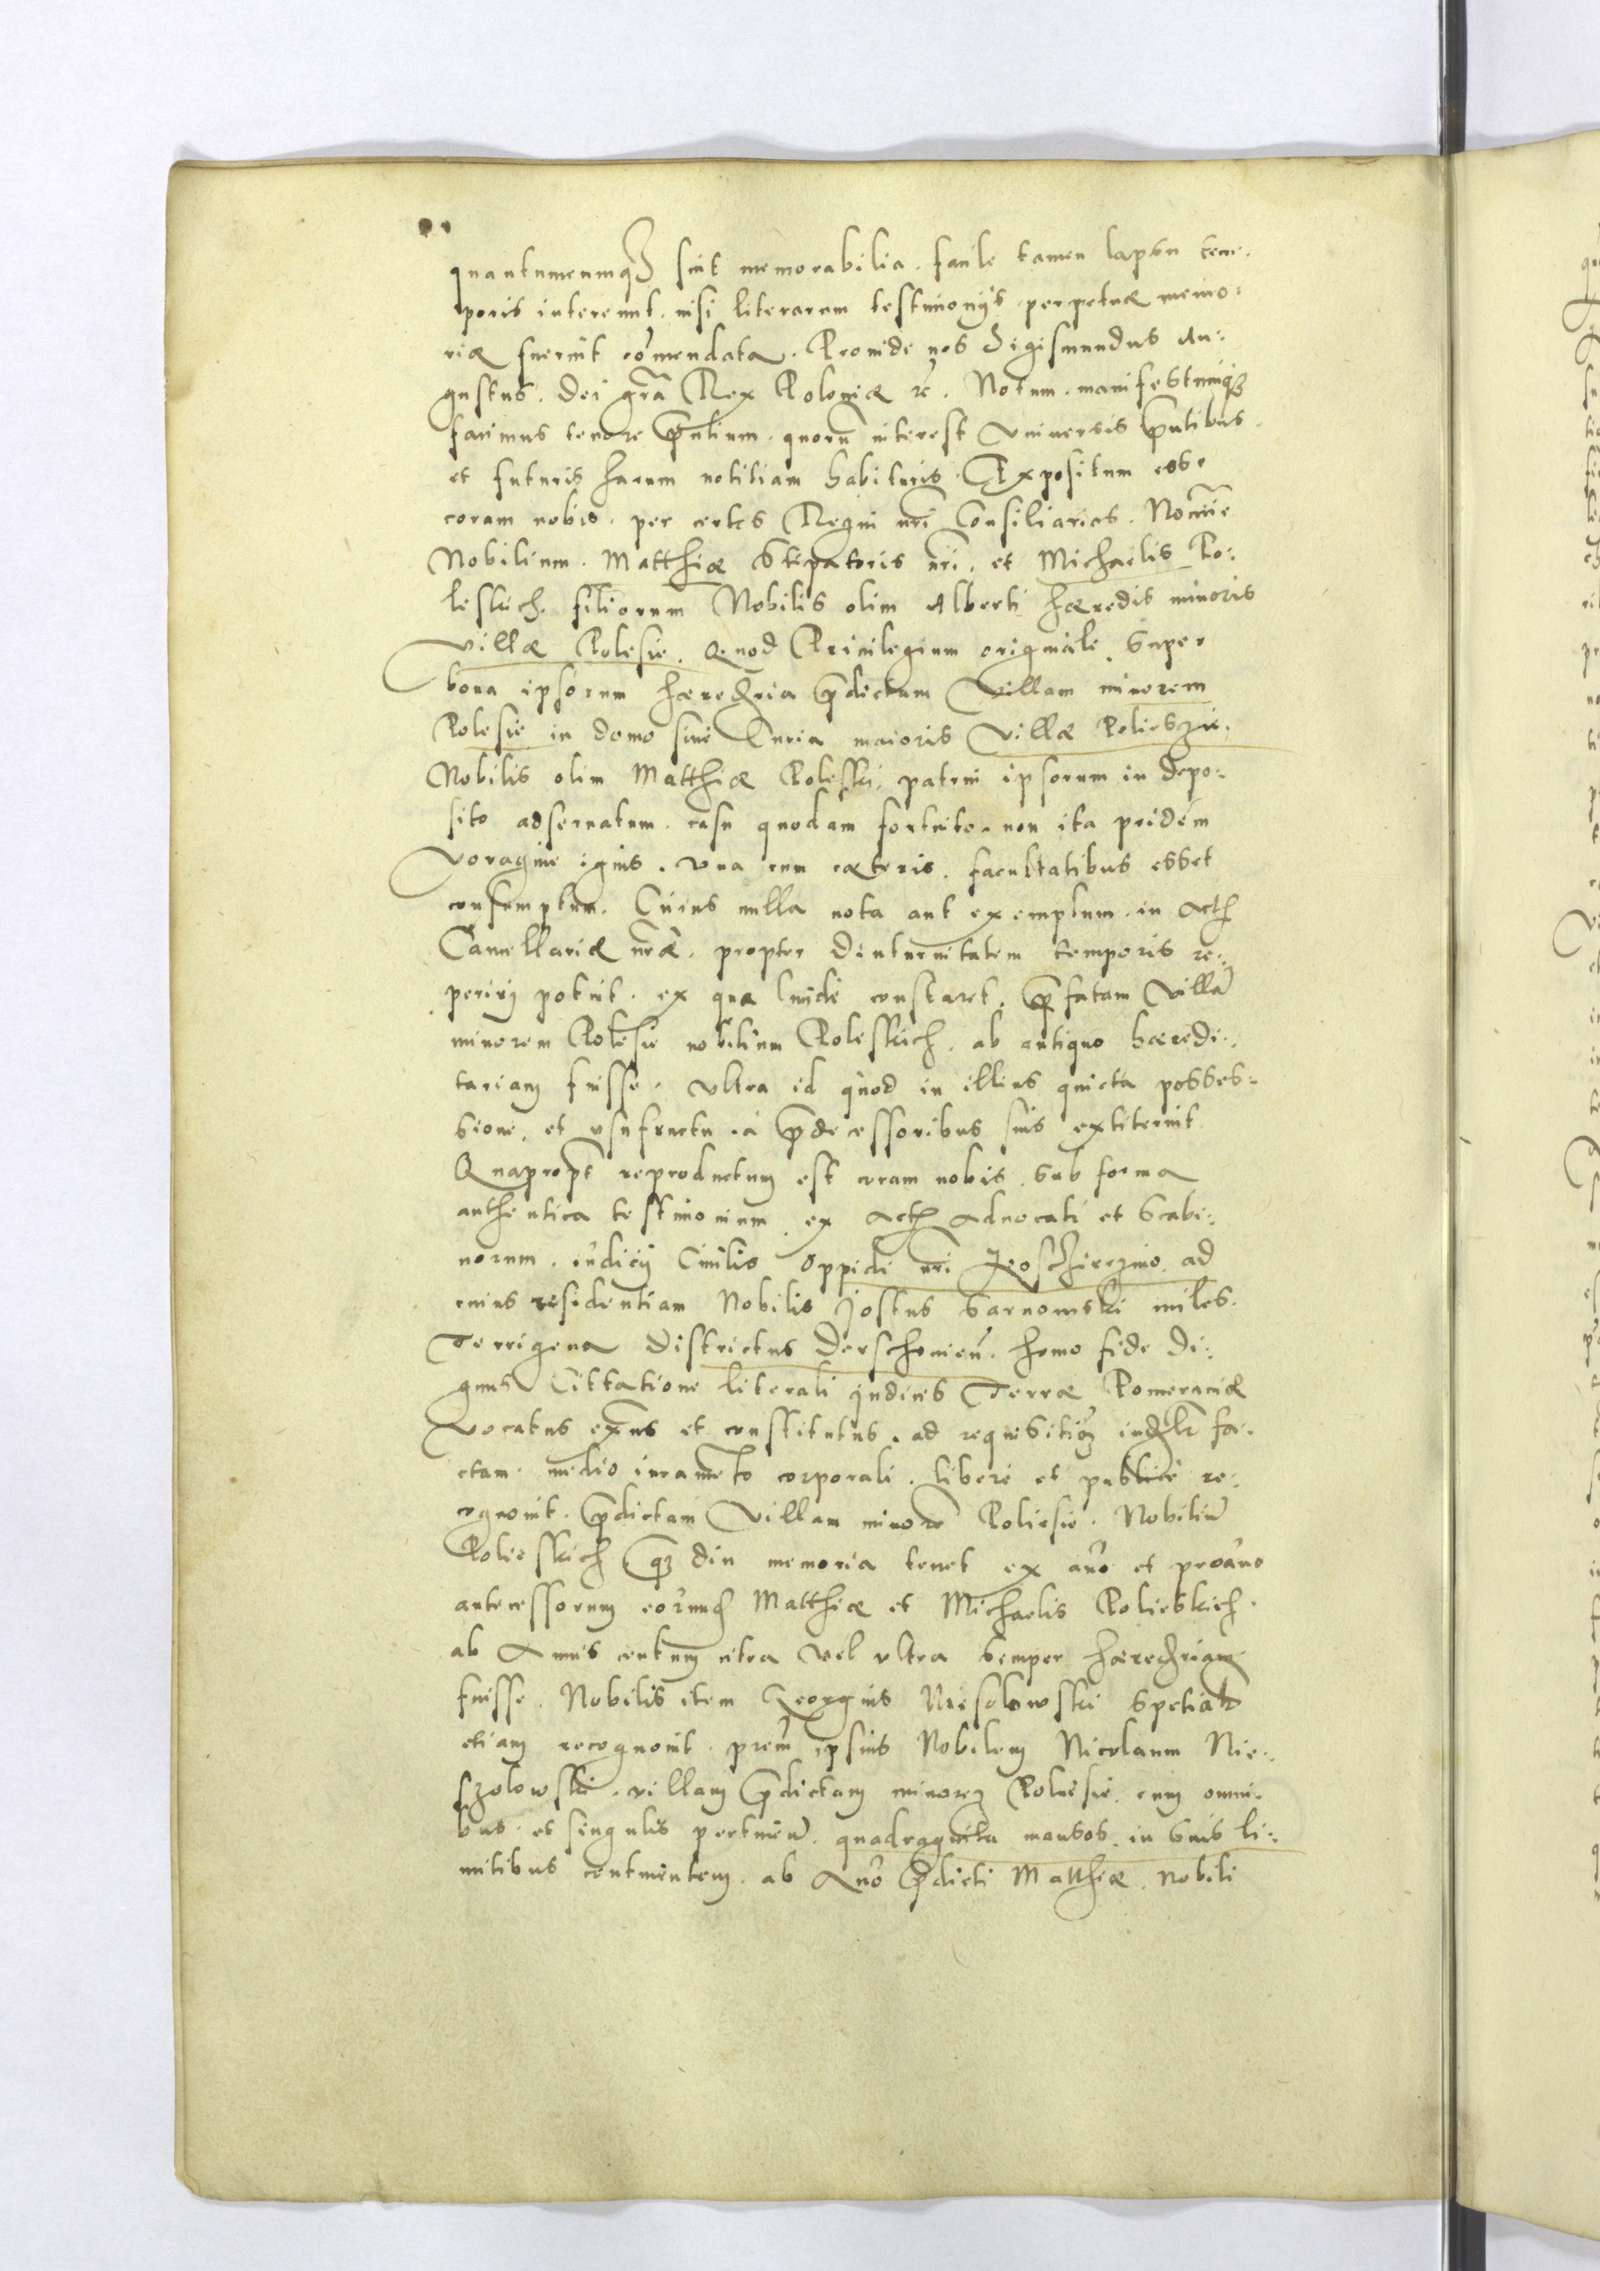 quantumcumq3 sint memorabilia. facile tamen lapsu tem-
poris intereunt. nisi literarum testimonijs perpetuæ memo-
riæ fuerint com̄endata. Proinde nos Sigismundus Au-
gustus. Dei gr̃a Rex Poloniæ ꝛc̃. Notum. manifestumq3
facimus tenore p̃ntium. quorū interest Vniuersis p̃ntibus
et futuris harum notitiam habituris. Expositum esse
coram nobis. per certos Regni nr̃i Consiliarios. Noīe
Nobilium. Matthiæ Stipatoris nr̃i. et Michaelis Po-
leskich. filiorum Nobilis olim Alberti hæredis minoris
villæ Polesie. Quod Priuilegium originale super
bona ipsorum hæred̃ria p̃dictam Villam minorem
Polesie in domo siue Curia maioris villæ Polieszie.
Nobilis olim Matthiæ Poleski. patrui ipsorum in depo-
sito adseruatum. casu quodam fortuito. non ita pridem
voragine ignis. vna cum cæteris. facultatibus esset
consumptum. Cuius nulla nota aut exemplum. in actꝭ
Cancellariæ nr̃æ. propter diuturnitatem temporis re-
perirj potuit. ex qua lucide constaret. p̃fatam villā
minorem Polesie nobilium Poleskich. ab antiquo hæredi-
tariam fuisse. vltra id quod in illius quieta posses-
sione. et vsufructu. à p̃decessoribus suis extiterint.
Quapropt̃ reproductum est coram nobis. sub forma
authentica testimonium ex actꝭ Aduocati et Scabi-
norum. iudicij Ciuilis Oppidi nr̃i Koschirzino. ad
cuius residentiam Nobilis Jostus Sarnowski miles.
Terrigena Districtus Derschouien̄. homo fide di-
gnus Cittatione literali Judicis Terræ Pomeraniæ
vocatus et constitutus. ad requisitioꝫ fa-
ctam. medio iuramēto corporali. libere et publicè re-
cognouit. p̃dictam Villam minorē Poliesie. Nobiliū
Polieskich q̃3 diu memoria tenet ex auo et proauo
antecessorum eorund̃ Matthiæ et Michaelis Polieskich.
ab Annis centum citra vel vltra semper hæred̃riam
fuisse. Nobilis item Georgius Niesolowski
etiam recognouit. ipsius Nobilem Nicolaum Nie-
szolowski. villam p̃dictam minoreꝫ Poliesie. cum omni-
bus. et singulis pertinen̄. quadraginta mansos. in suis li-
mitibus continentem. ab Auo p̃dicti Matthiæ. nobili